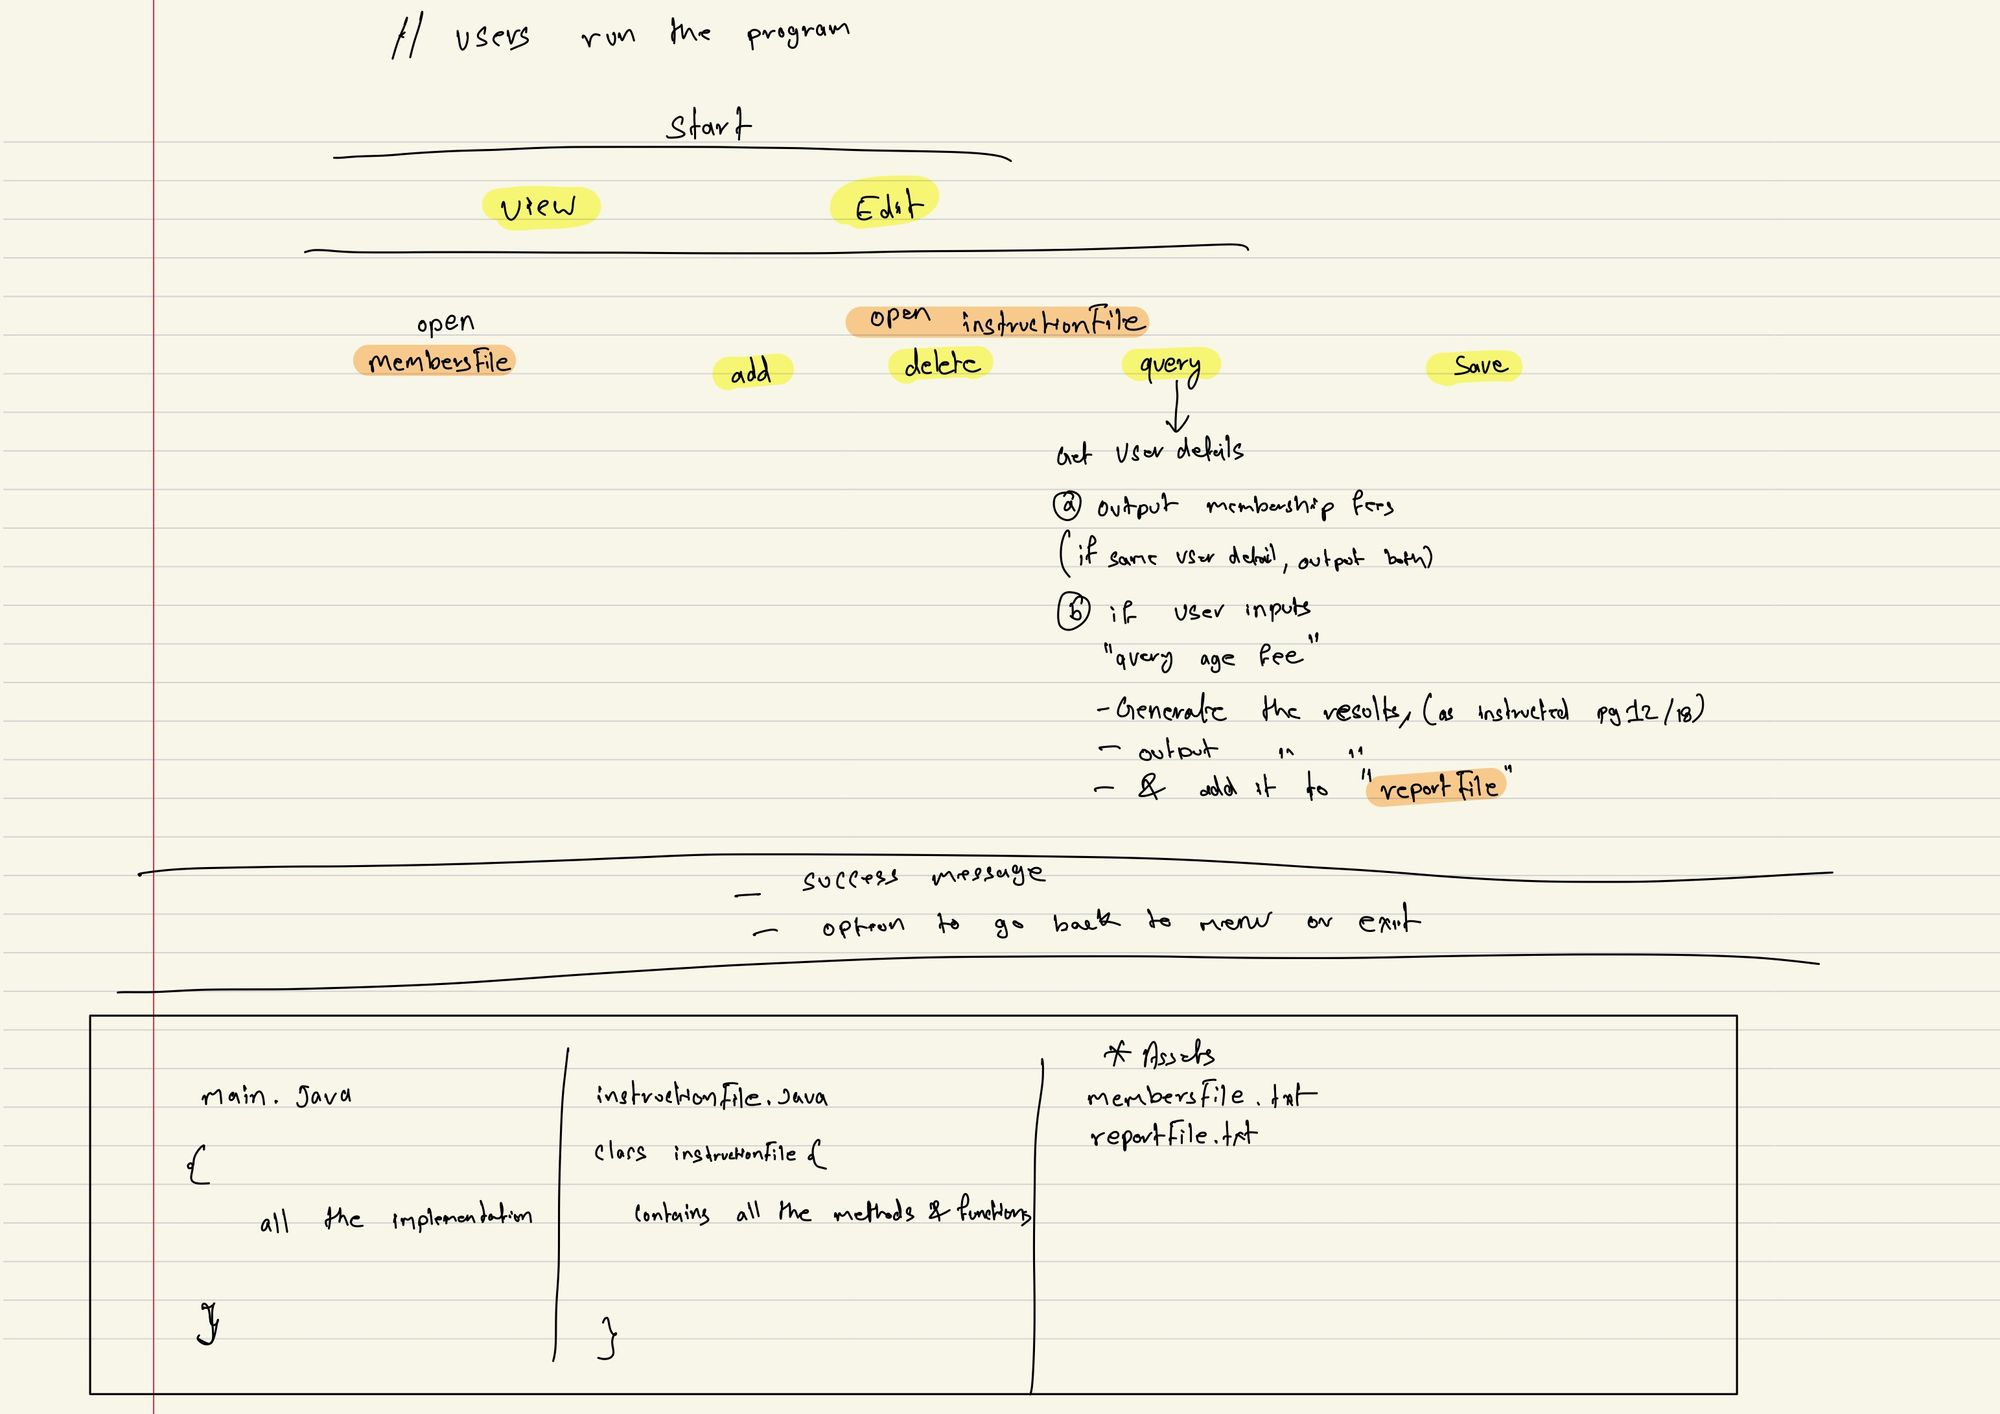 // users run the program
Start
View Edit
open
membersFile
open instructionFile
add delete query Save
Get User details
(a) output membership fees
(if same user detail, output both)
(b) if user inputs
"query age fee"
- Generate the results, (as instructed pg 12/18)
- output " "
- & add it to "reportFile"
- success message
- option to go back to menu or exit
main.Java
{
all the implementation
}
instructionFile.Java
class instructionFile {
contains all the methods & functions
}
* Assets
membersFile.txt
reportFile.txt